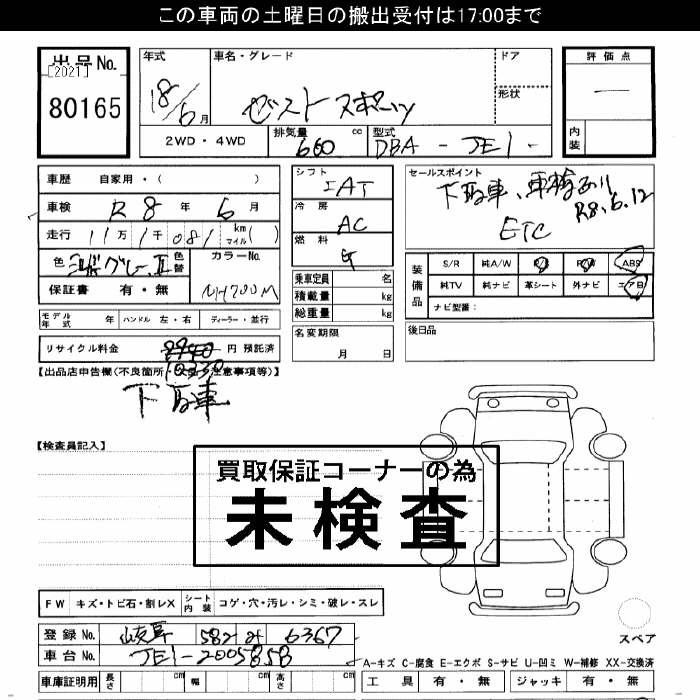 この車両の土曜日の搬出受付は17:00まで
出品No.
[2021]
80165
年式
18/6月
車名・グレード
ゼストスポーツ
ドア
形状
評価点
内装
2WD・4WD
排気量 660 cc
型式 DBA - JE1 -
車歴 自家用・( )
車検 R8年 6月
走行 11万1千081 km マイル( )
色 グレーII 色替
カラーNo. NH700M
保証書 有・無
シフト IAT
冷房 AC
燃料 G
乗車定員 名
積載量 kg
総重量 kg
セールスポイント
下取車、車検あり
R8.6.12
ETC
装備品
S/R 純A/W P/S P/W ABS
純TV 純ナビ 革シート 外ナビ エアB
ナビ型番:
モデル年式 年 ハンドル 左・右 ディーラー・並行
名変期限
月 日
後日品
リサイクル料金 円 預託済
10330
【出品店申告欄(不良箇所・欠品・注意事項等)】
下取車
【検査員記入】
買取保証コーナーの為
未検査
FW キズ・トビ石・割レX シート内装 コゲ・穴・汚レ・シミ・破レ・スレ
スペア
登録No. 岐阜 582 み 6367
車台No. JE1-2005858
A-キズ C-腐食 E-エクボ S-サビ U-凹ミ W-補修 XX-交換済
車庫証明用 長さ cm 幅 cm 高さ cm
工具 有・無 ジャッキ 有・無